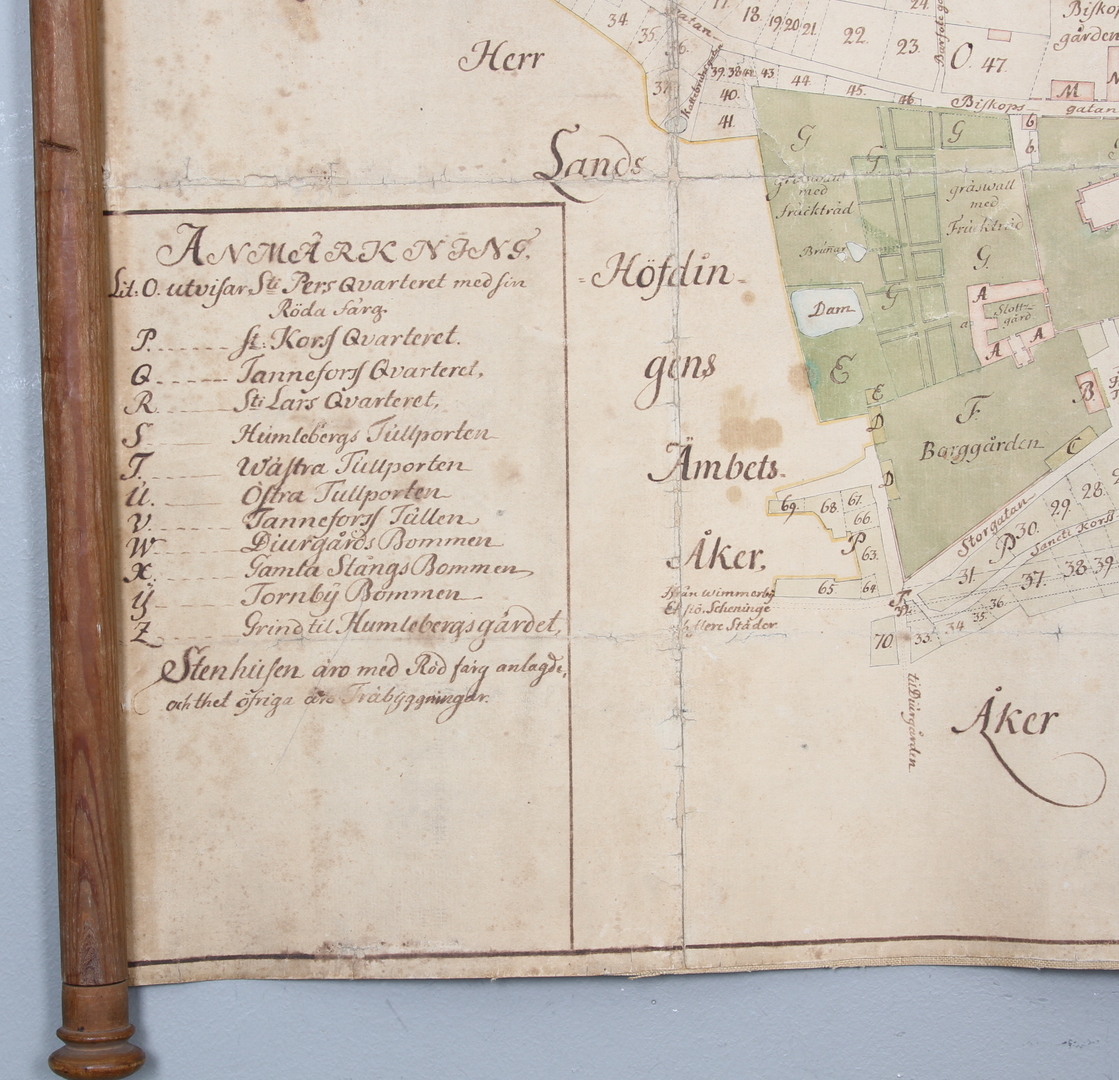 Herr
Lands
=Höfdin-
gens
Ämbets-
Åker,
Ifrån Wimmerby
Ek siö. Scheninge
flere Städer
ANMÄRKNING.
Lit: O. utvisar Sti Pers Qvarteret med sin
Röda färg.
P. St: Korss Qvarteret.
Q Tannefors Qvarteret,
R Sti Lars Qvarteret,
S Humlebergs Tullporten
T. Wästra Tullporten
U. Östra Tullporten
V Tannefors Tullen
W Diurgårds Bommen
X Gamla Stångs Bommen
Ÿ Tornbÿ Bommen
Z Grind til Humlebergs gärdet,
Stenhusen äro med Röd färg anlagde,
och thet öfriga äro Träbyggningar.
34.
35.
36
37.
17
18.
19
20
21.
22.
23.
24.
O 47.
Biskops
gården
39. 38 42. 43
44.
45.
46
40.
41.
M
Biskops gatan
G
G
G
6
6.
gräswall
med
Fruckträd
gräswall
med
Fruckträd
Brunar
G.
G
Dam
A
Slotts-
gård
A
A
E
E
D
D
F.
Borggården
B
C
69.
68.
67.
66.
P
63.
65.
64.
Storgatan
P
Sancti Korss
28.
29.
30.
31.
T
32.
33.
34.
35.
36.
37.
38.
39.
70.
til Diurgården
Åker